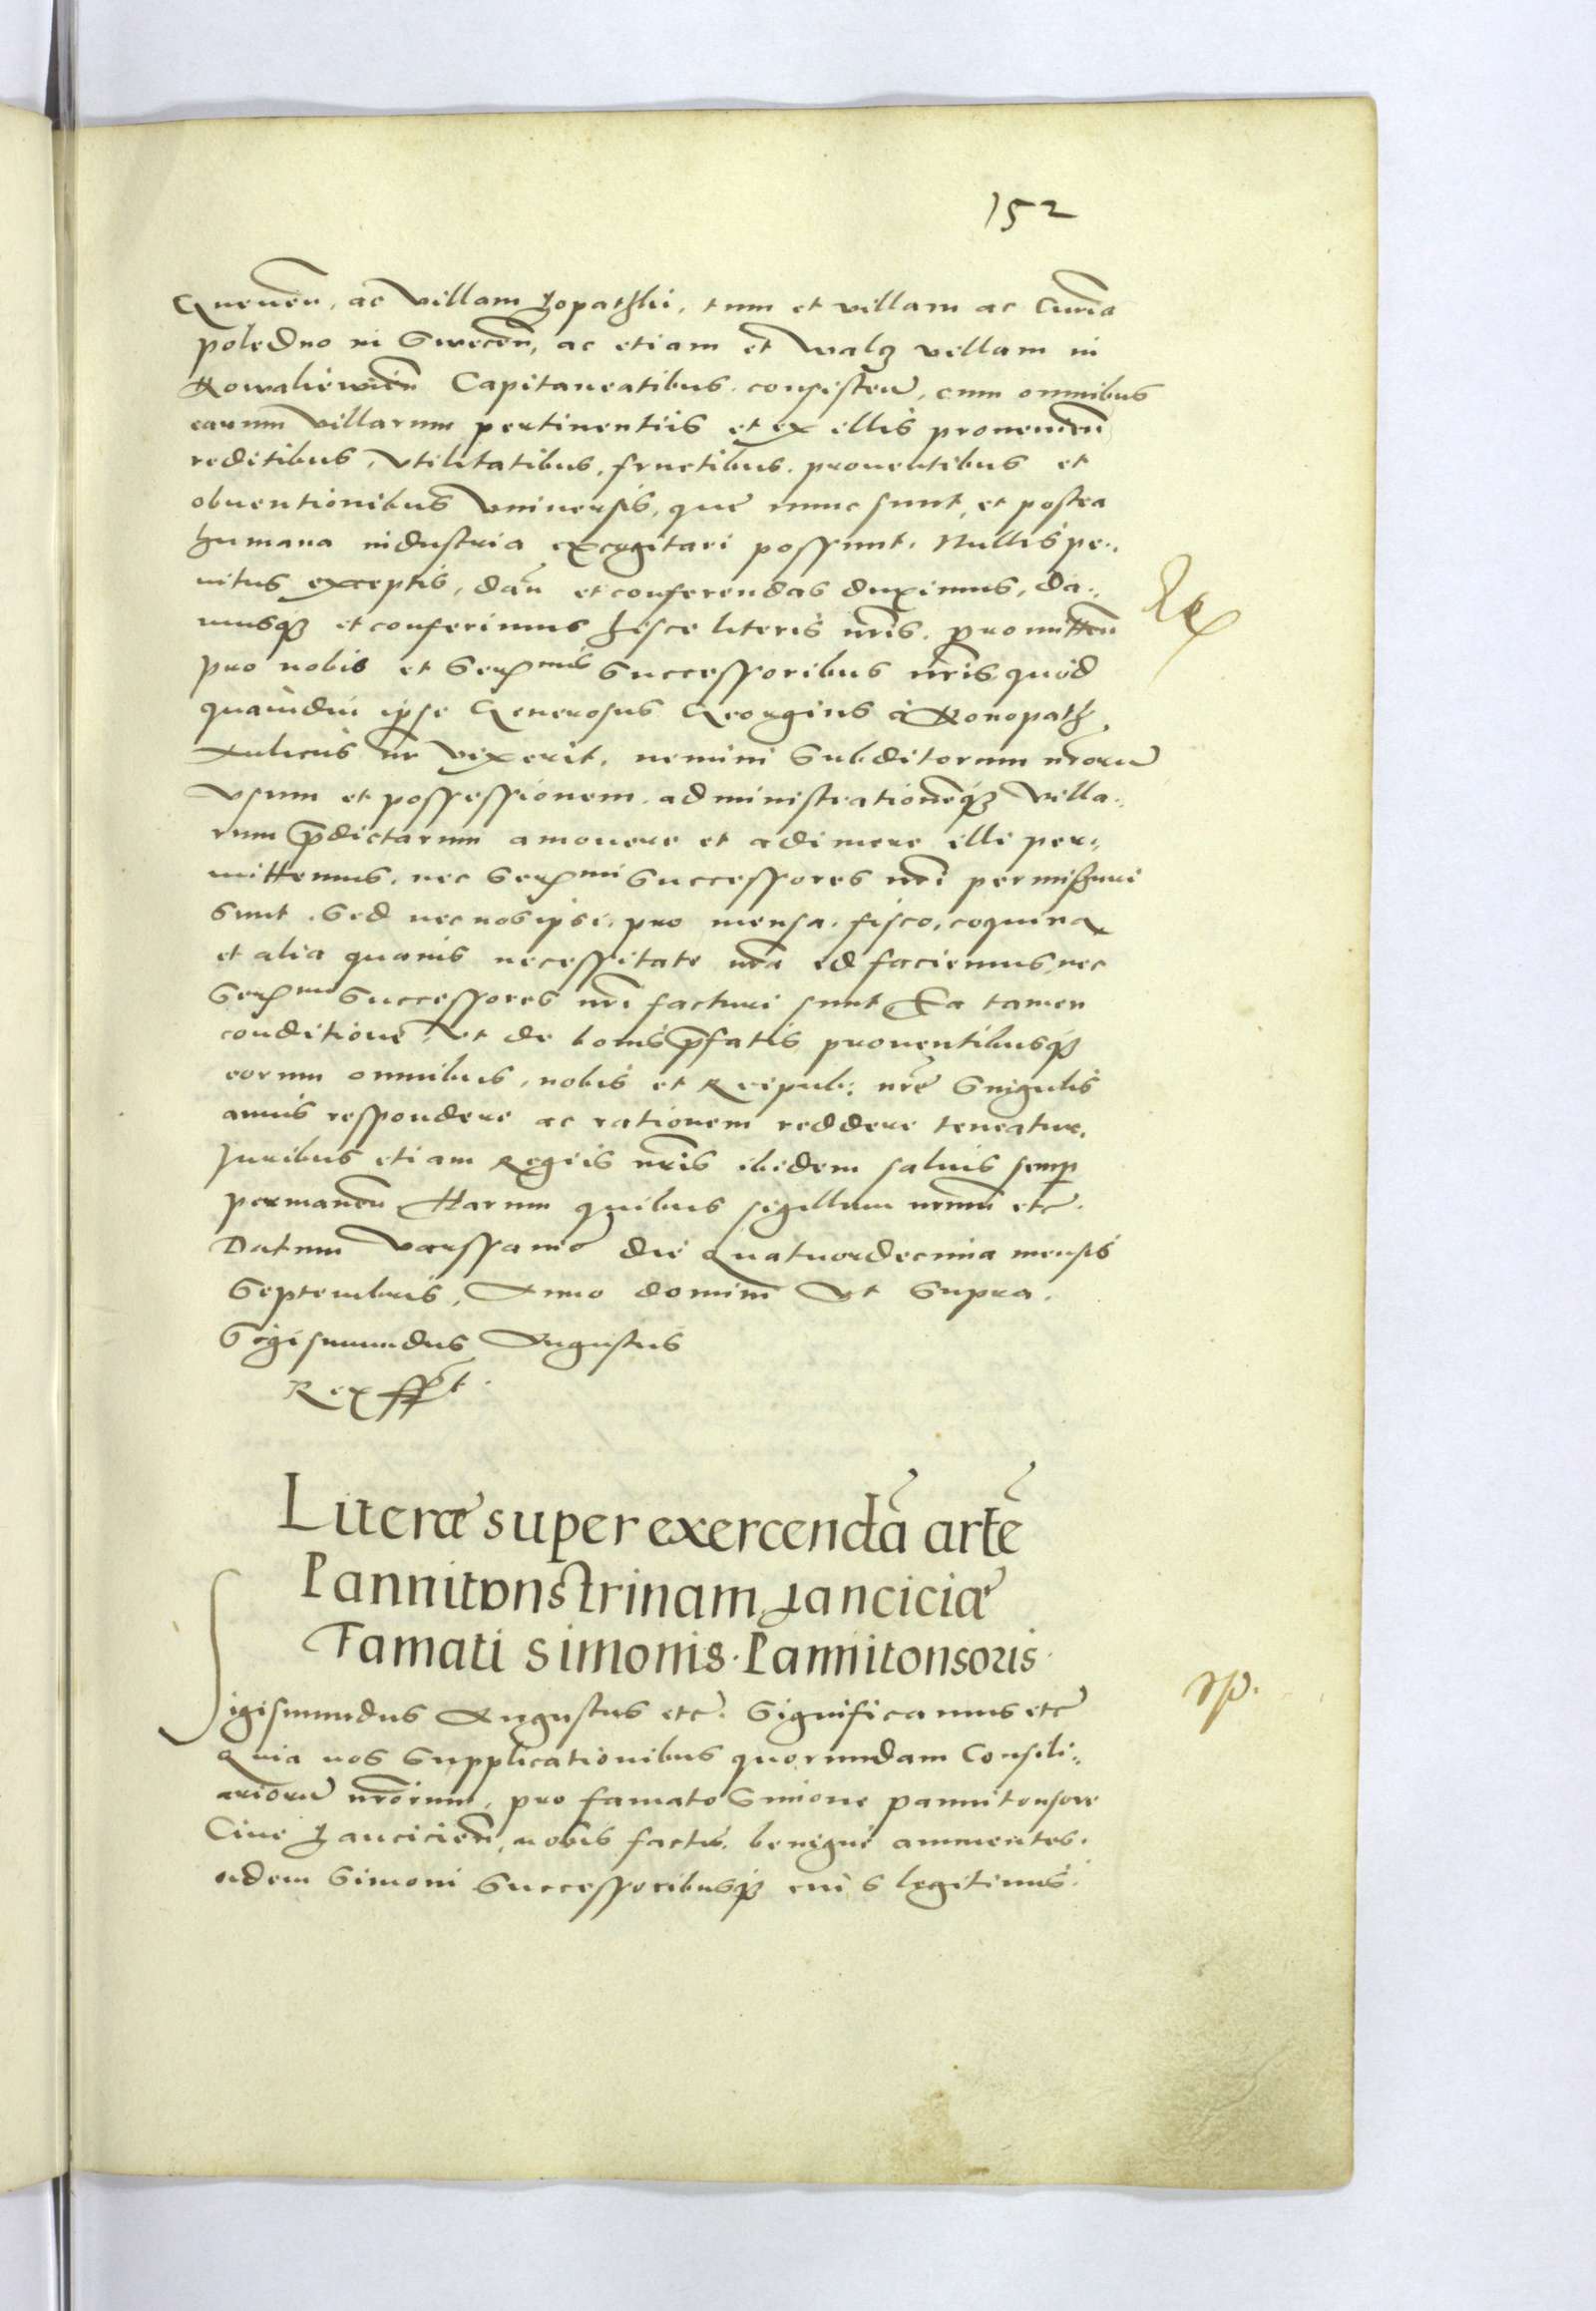 152
Gneuen, ac villam Łopathki, tum et villam ac Curia
poledno in Swecen, ac etiam et walg villam in
Kowaliewien Capitaneatibus consisten, cum omnibus
earum villarum pertinentiis et ex illis prouenien
reditibus, vtilitatibus, fructibus, prouentibus et
obuentionibus vniuersis, que nunc sunt, et postea
humana industria excogitari possunt, Nullis pe„
nitus exceptis, dan et conferendas duximus, da„
musq et conferimus hisce literis nris. promitten
pro nobis et Sermis Successoribus nris quod
quamdiu ipse Generosus Georgius à Konopath
Aulicus nr vixerit, nemini Subditorum nroru
vsum et possessionem, administrationeq villa„
rum pdictarum amouere et adimere illi per„
mittemus, nec Sermi Successores nri permissuri
sunt. Sed nec nos ipsi, pro mensa, fisco, coquina
et alia quauis necessitate nra id faciemus, nec
Sermi Successores nri facturi sunt Ea tamen
conditione, vt de bonis pfatis prouentibusq
eorum omnibus, nobis et Reipub: nre Singulis
annis respondere ac rationem reddere teneatur,
Juribus etiam Regiis nris ibidem saluis semp
permanen Harum quibus sigillum nrum etc.
Datum Varssauie die Quatuordecima mensis
Septembris, Anno domini vt Supra.
Sigismundus Augustus
Rex sspt.
Literæ super exercendã artẽ
Pannitonstrinam Łanciciæ
Famati Simonis Pannitonsoris
Sigismundus Augustus etc. Significamus etc
Quia nos Supplicationibus quorundam Consili„
arioru nrorum, pro famato Simone pannitonsore
Ciue Łancicien, nobis factis, benigne annuentes,
eidem Simoni Successoribusq eius legitimis